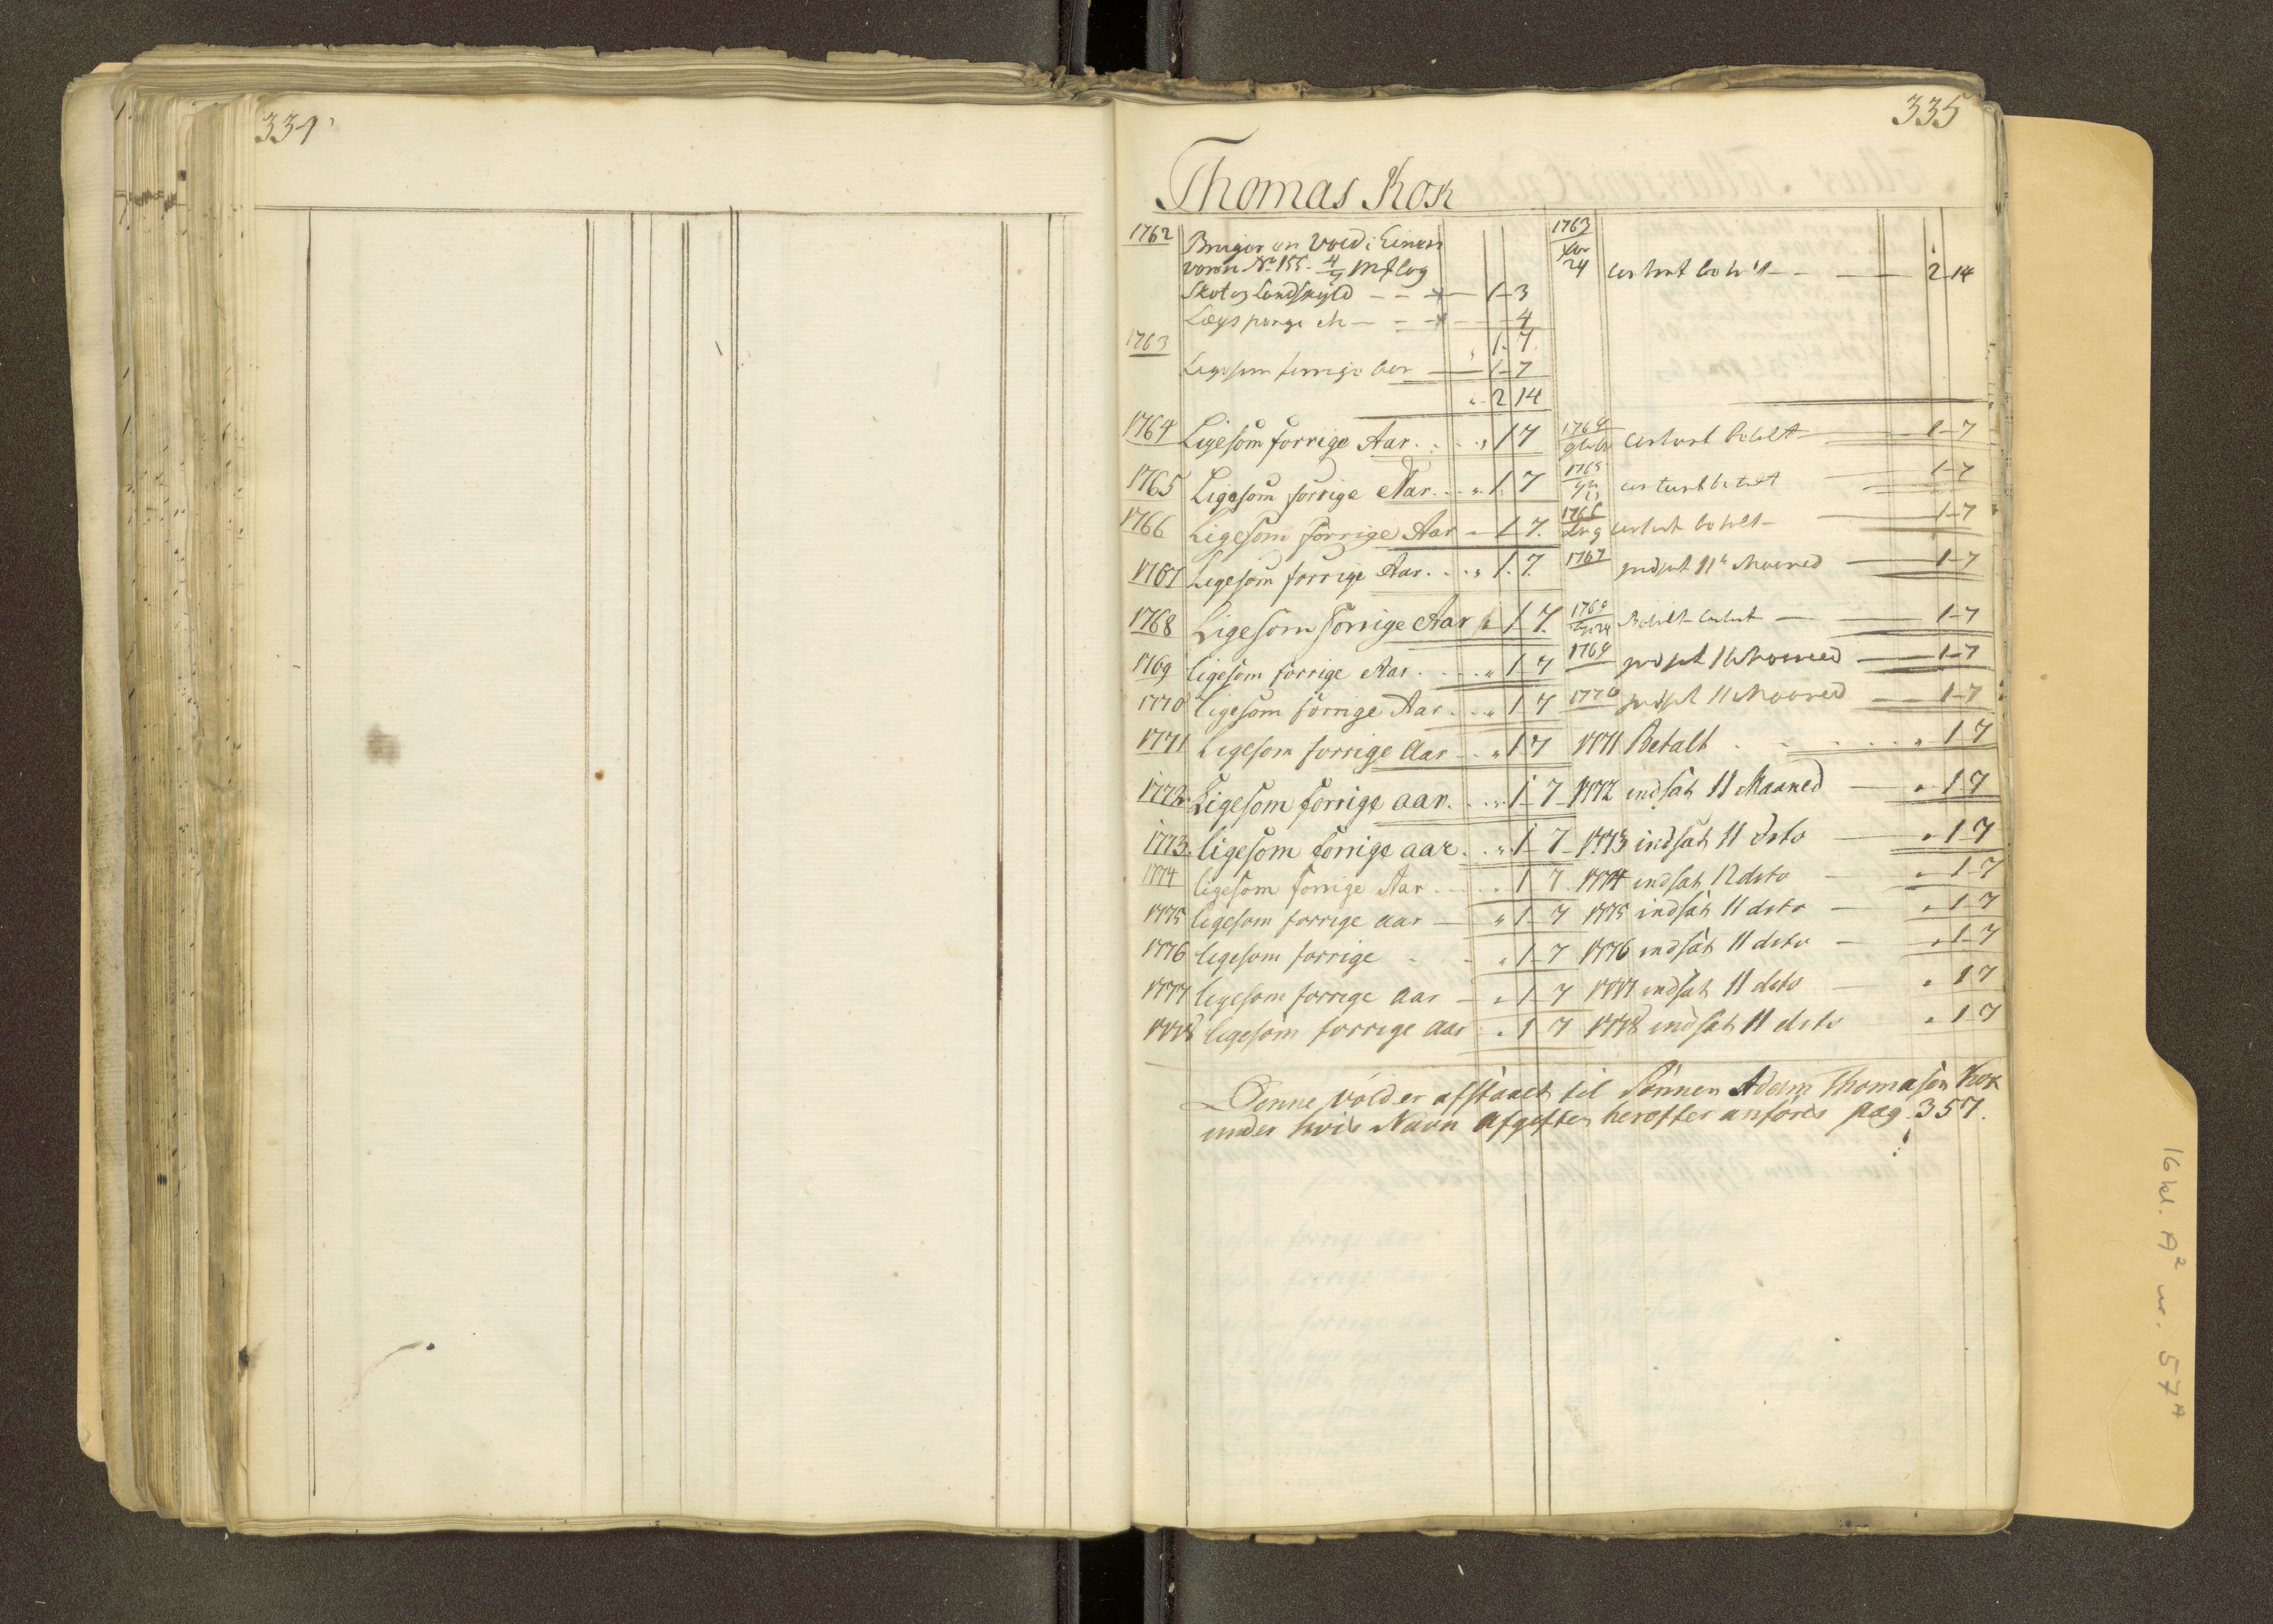 334
335
Thomas Kok
1762 Bruger en Vold i Einers
vorm No 155. 4/7 mk log
Skat og Landskyld - - 1-3
Lægs penge - - - 4
1-7
1763 Ligesom forrige Aar - 1-7
" 2 14
1763
24 contant bet - - - 2 14
1764 Ligesom forrige Aar. . . " 1 7 1764 contant betalt - 1-7
1765 Ligesom forrige Aar. . . " 1. 7 1765 contant betalt - 1-7
1766 Ligesom forrige Aar - 1-7. 1766 contant betalt - 1-7
1767 Ligesom forrige Aar. . . " 1. 7. 1767 indsat 11te Maaned - 1-7
1768 Ligesom forrige Aar " 1 7. 1768 Betalt contant - 1-7
1769 ligesom forrige Aar . . . " 1-7 1769 indsat Maaned - 1-7
1770 ligesom forrige Aar . . . " 1-7 1770 indsat 11 Maaned - 1-7
1771 ligesom forrige Aar . . " 1 7 1771 Betalt . . . . . . " 1 7
1772 Ligesom forrige aar. . . " 1-7 1772 indsat 11 Maaned - " 1-7
1773. ligesom forrige aar. . " 1-7 1773 indsat 11 dito - " 1 7
1774 ligesom forrige Aar . . . . 1 7. 1774 indsat 12 dito - " 1 7
1775 ligesom forrige aar - " 1-7 1775 indsat 11 dito - " 1 7
1776 ligesom forrige - - " 1-7 1776 indsat 11 dito - " 1-7
1777 ligesom forrige aar - " 1-7 1777 indsat 11 dito - " 1 7
1778 ligesom forrige aar " 1 7 1778 indsat 11 dito " 1-7
Denne vold er afstaaet til Sønnen Adam Thomasøn Kok
under hvis Navn Afgiften herefter anføris pag. 357.
16 kl. A2 nr. 57A